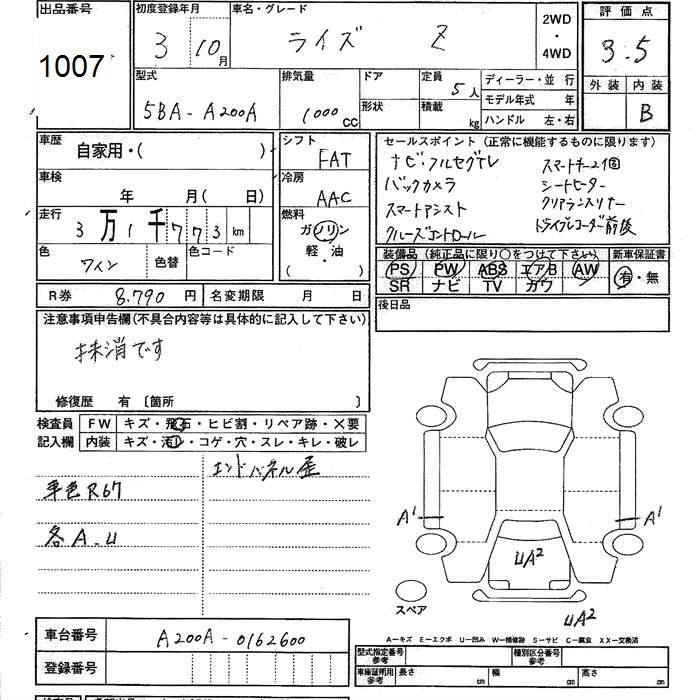 出品番号
1007
初度登録年月
3 10月
車名・グレード
ライズ Z
2WD
・
4WD
評価点
3.5
外装 内装
B
型式
5BA-A200A
排気量
1000cc
ドア
形状
定員
5人
積載
kg
ディーラー・並 行
モデル年式 年
ハンドル 左・右
車歴
自家用・( )
車検
年 月( 日)
走行
3万1千773km
色
ワイン
色替
色コード
シフト
FAT
冷房
AAC
燃料
ガソリン
軽・油
( )
セールスポイント (正常に機能するものに限ります)
ナビ・フルセグTV スマートキー2個
バックカメラ シートヒーター
スマートアシスト クリアランスソナー
クルーズコントロール ドライブレコーダー前後
装備品 (純正品に限り○をつけて下さい) 新車保証書
PS PW ABS エアB AW 有・無
SR ナビ TV カワ
後日品
R券 8,790円 名変期限 月 日
注意事項申告欄(不具合内容等は具体的に記入して下さい)
抹消です
修復歴 有 〔箇所 〕
検査員 FW キズ・飛石・ヒビ割・リペア跡・×要
記入欄 内装 キズ・汚レ・コゲ・穴・スレ・キレ・破レ
エンドパネル歪
車色R67
各A.U
A1
A1
UA2
スペア
UA2
車台番号 A200A-0162600
登録番号
A-キズ E-エクボ U-凹み W-補修跡 S-サビ C-腐食 XX-交換済
型式指定番号 参考 種別区分番号 参考
車庫証明用 参考 長さ cm 幅 cm 高さ cm